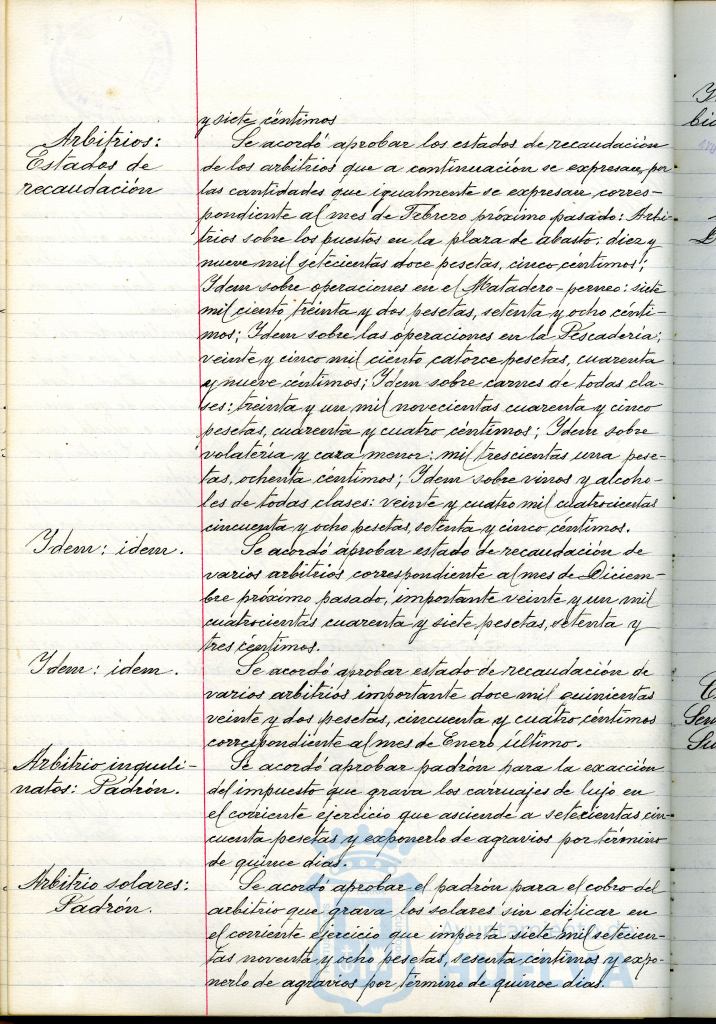 y siete céntimos
Arbitrios:
Estados de
recaudación
Se acordó aprobar los estados de recaudación
de los arbitrios que a continuación se expresan, por
las cantidades que igualmente se expresan corres-
pondiente al mes de Febrero próximo pasado: Arbi-
trios sobre los puestos en la plaza de abasto: diez y
nueve mil setecientas doce pesetas, cinco céntimos;
Ydem sobre operaciones en el Matadero-perneo: siete
mil ciento treinta y dos pesetas, setenta y ocho cénti-
mos; Ydem sobre las operaciones en la Pescadería;
veinte y cinco mil ciento catorce pesetas, cuarenta
y nueve céntimos; Ydem sobre carnes de todas cla-
ses: treinta y un mil novecientas cuarenta y cinco
pesetas, cuarenta y cuatro céntimos; Ydem sobre
volatería y caza menor: mil trescientas una pese-
tas, ochenta céntimos; Ydem sobre vinos y alcoho-
les de todas clases: veinte y cuatro mil cuatrocientas
cincuenta y ocho pesetas, setenta y cinco céntimos.
Ydem: idem.
Se acordó aprobar estado de recaudación de
varios arbitrios correspondiente al mes de Diciem-
bre próximo pasado, importante veinte y un mil
cuatrocientas cuarenta y siete pesetas, setenta y
tres céntimos.
Ydem: idem.
Se acordó aprobar estado de recaudación de
varios arbitrios importante doce mil quinientas
veinte y dos pesetas, cincuenta y cuatro céntimos
correspondiente al mes de Enero último.
Arbitrio inquili-
natos: Padrón.
Se acordó aprobar padrón para la exacción
del impuesto que grava los carruajes de lujo en
el corriente ejercicio que asciende a setecientas cin-
cuenta pesetas y exponerlo de agravios por término
de quince dias.
Arbitrio solares:
Padrón.
Se acordó aprobar el padrón para el cobro del
arbitrio que grava los solares sin edificar en
el corriente ejercicio que importa siete mil setecien-
tas noventa y ocho pesetas, sesenta céntimos y expo-
nerlo de agravios por término de quince dias.
Ayuntamiento de
HUELVA